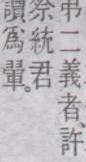 弔二義者、許
祭統君
讀爲煇。